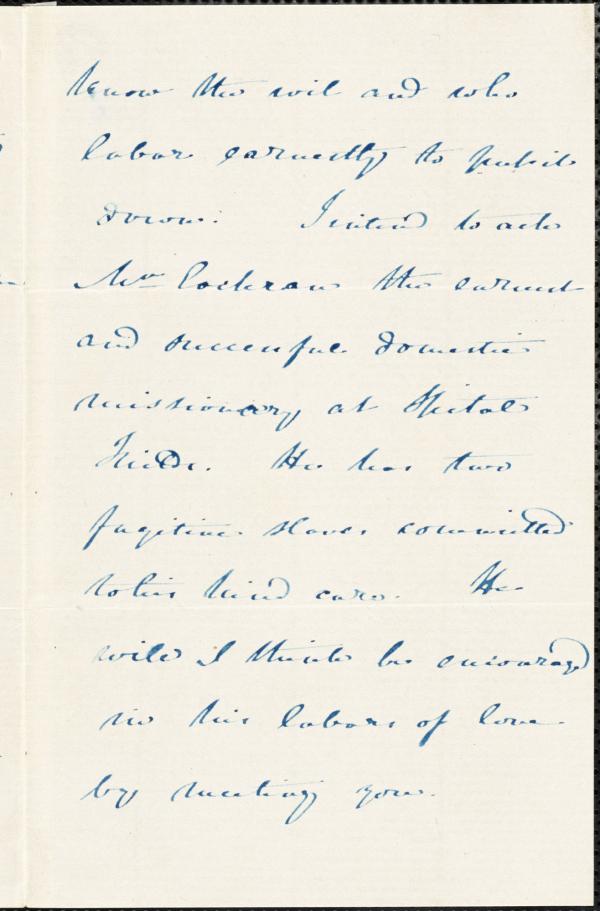 know the evil and who
labor earnestly to put it
down. I intend to ask
Mr Cochran the earnest
and successful domestic
missionary at Spital
Fields. He has two
fugitive slaves committed
to his kind care. He
will I think be encouraged
in his labors of love
by meeting you.